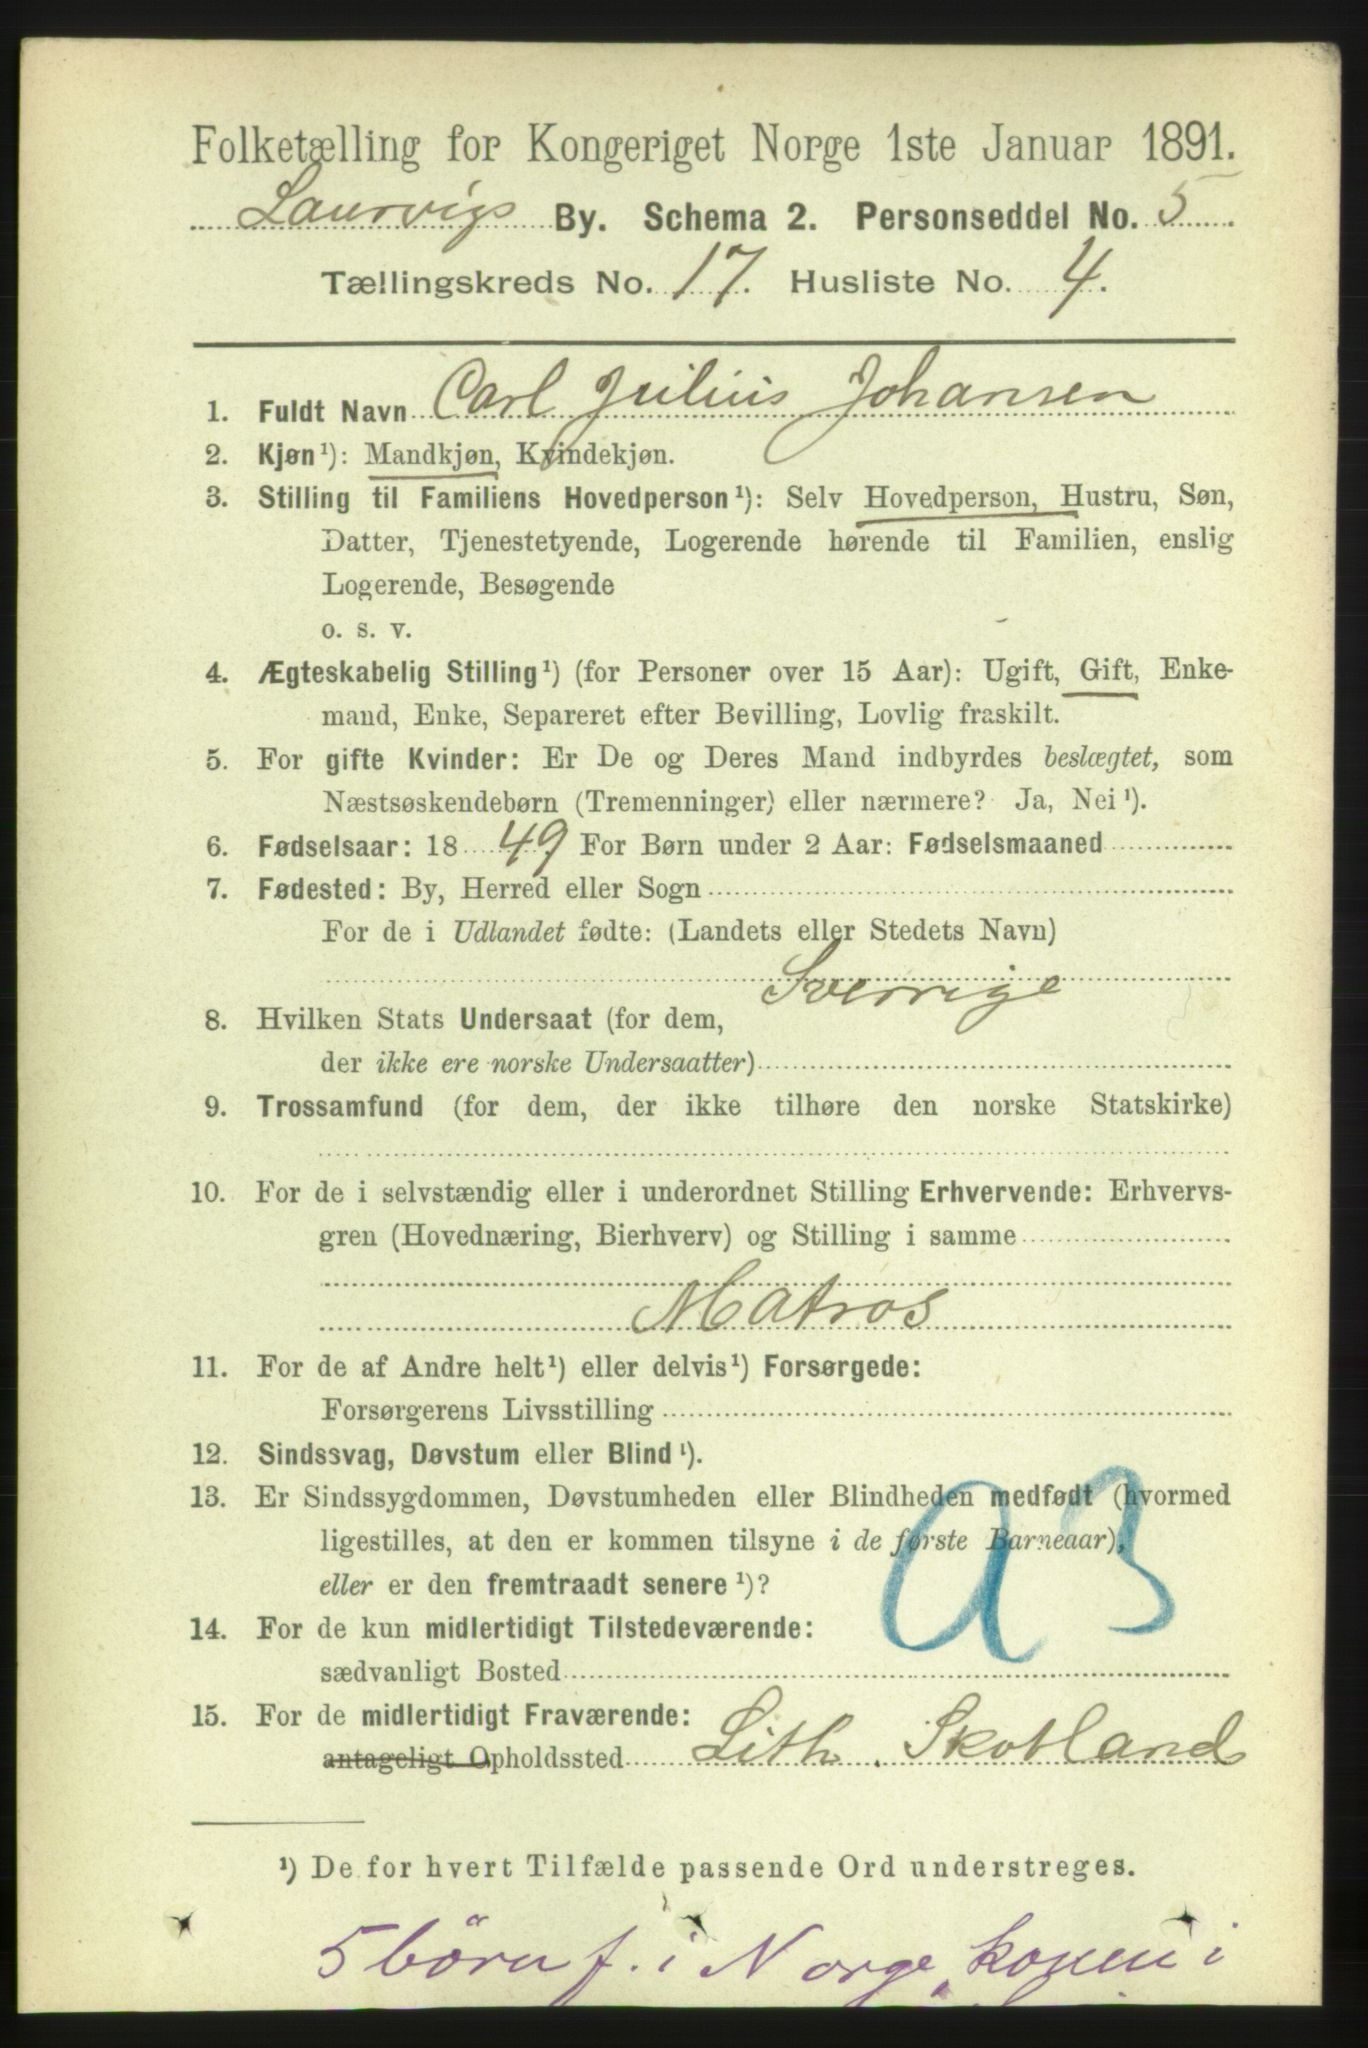 Folketælling for Kongeriget Norge 1ste Januar 1891.
Laurvigs By. Schema 2. Personseddel No. 5
Tællingskreds No. 17. Husliste No. 4.
1. Fuldt Navn Carl Julius Johansen
2. Kjøn¹): Mandkjøn, Kvindekjøn.
3. Stilling til Familiens Hovedperson¹): Selv Hovedperson, Hustru, Søn,
Datter, Tjenestetyende, Logerende hørende til Familien, enslig
Logerende, Besøgende
o. s. v.
4. Ægteskabelig Stilling¹) (for Personer over 15 Aar): Ugift, Gift, Enke-
mand, Enke, Separeret efter Bevilling, Lovlig fraskilt.
5. For gifte Kvinder: Er De og Deres Mand indbyrdes beslægtet, som
Næstsøskendebørn (Tremenninger) eller nærmere? Ja, Nei¹).
6. Fødselsaar: 1849 For Børn under 2 Aar: Fødselsmaaned
7. Fødested: By, Herred eller Sogn
For de i Udlandet fødte: (Landets eller Stedets Navn)
Sverrige
8. Hvilken Stats Undersaat (for dem,
der ikke ere norske Undersaatter)
9. Trossamfund (for dem, der ikke tilhøre den norske Statskirke)
10. For de i selvstændig eller i underordnet Stilling Erhvervende: Erhvervs-
gren (Hovednæring, Bierhverv) og Stilling i samme
Matros
11. For de af Andre helt¹) eller delvis¹) Forsørgede:
Forsørgerens Livsstilling
12. Sindssvag, Døvstum eller Blind¹).
13. Er Sindssygdommen, Døvstumheden eller Blindheden medfødt (hvormed
ligestilles, at den er kommen tilsyne i de første Barneaar),
eller er den fremtraadt senere¹)?
14. For de kun midlertidigt Tilstedeværende:
sædvanligt Bosted
15. For de midlertidigt Fraværende:
antageligt Opholdssted Lith. Skotland
¹) De for hvert Tilfælde passende Ord understreges.
5 börn f. i Norge, konen i